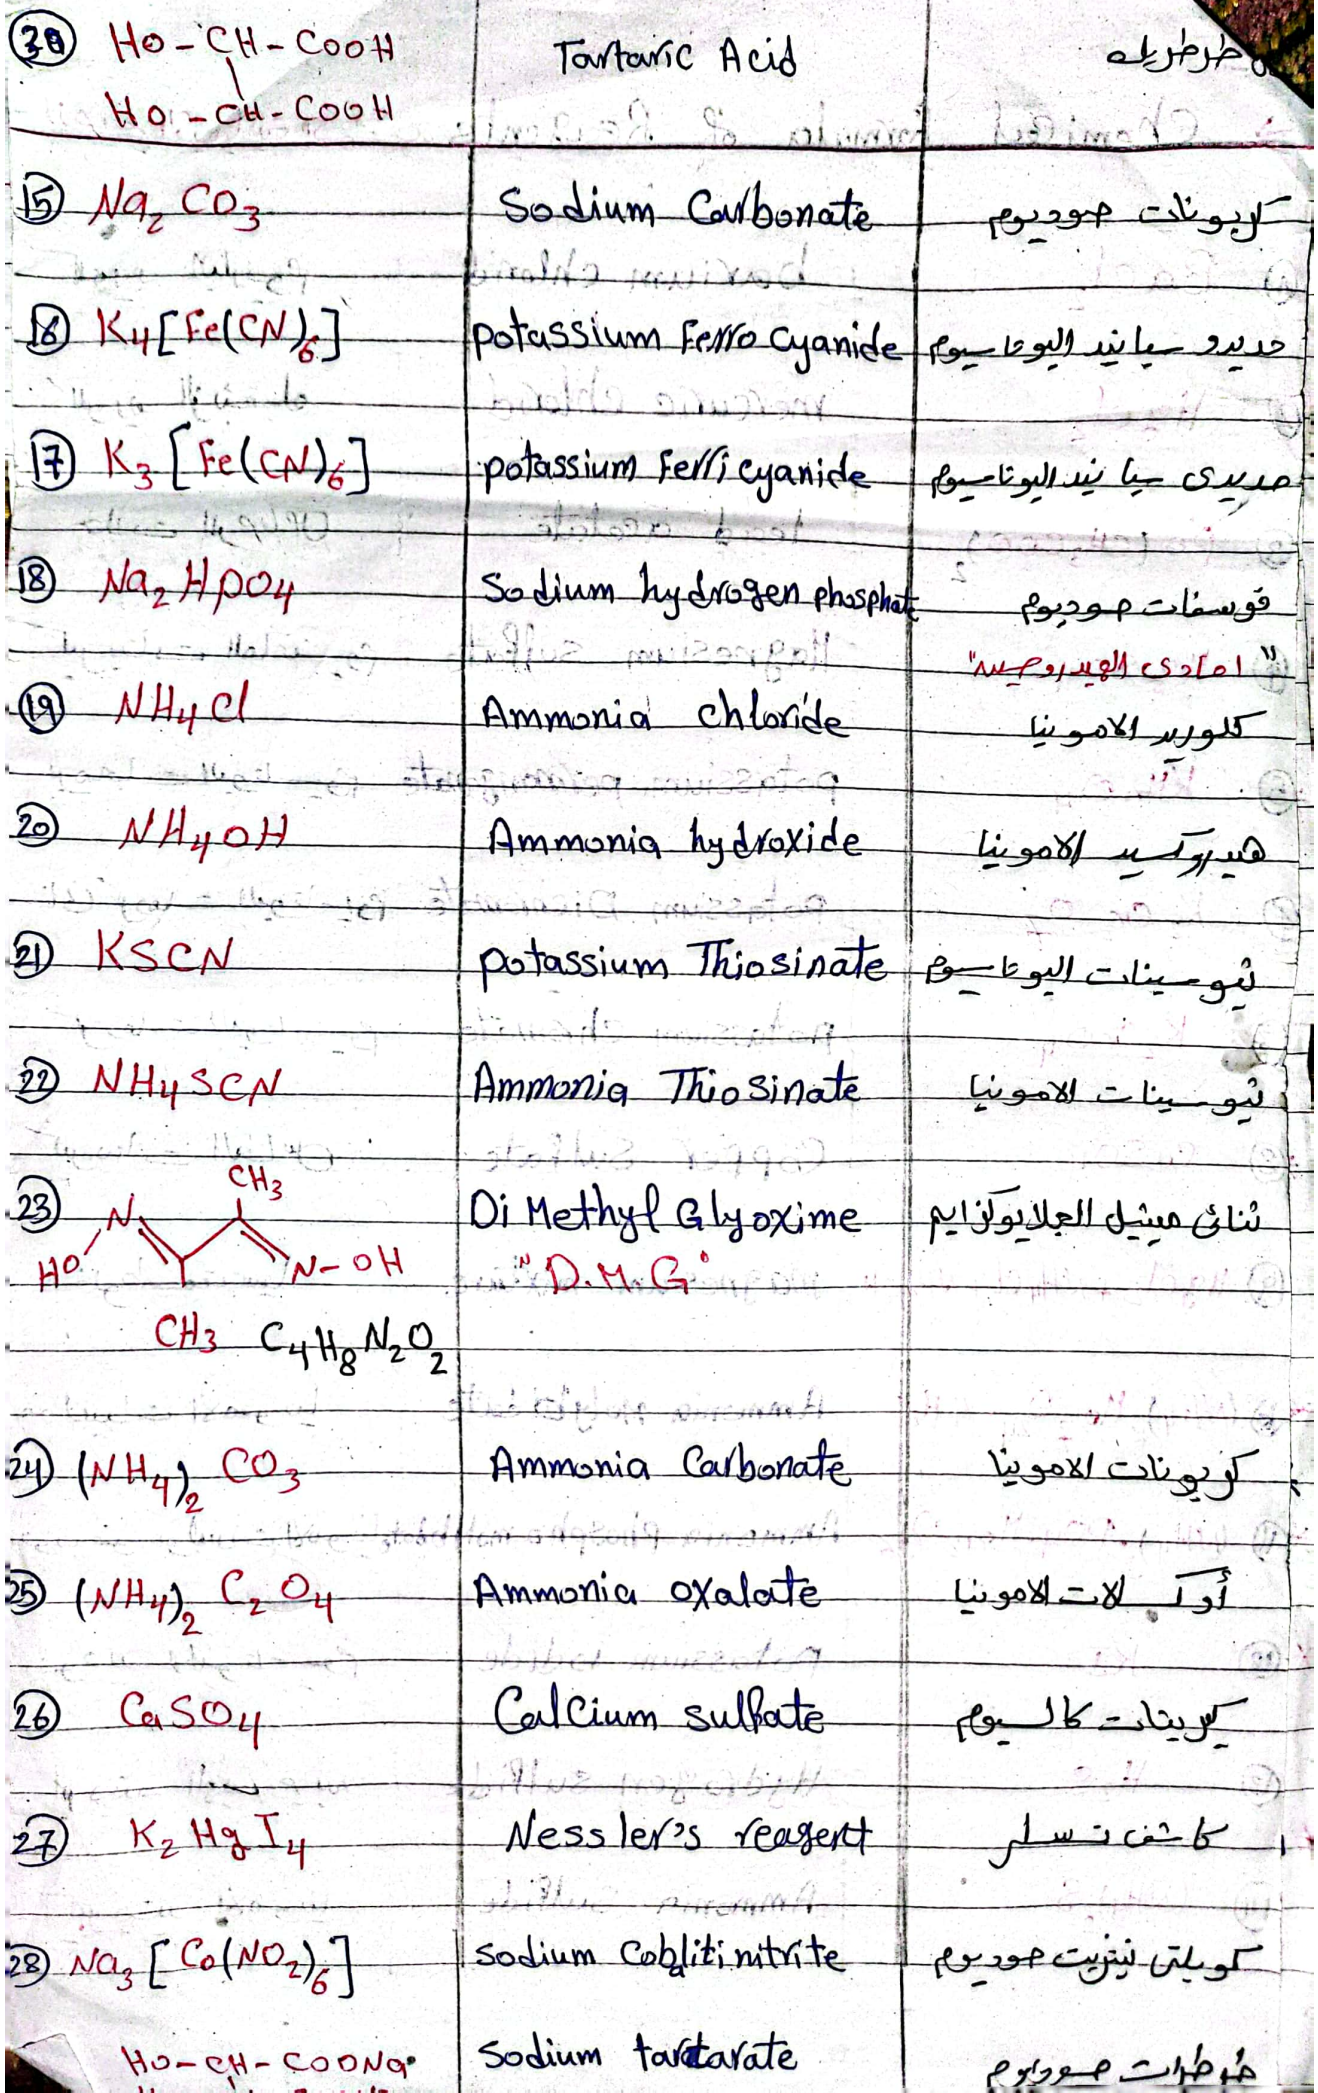 30 HO-CH-COOH Tartaric Acid طرطريك
HO-CH-COOH
15 Na2CO3 Sodium Carbonate كربونات صوديوم
16 K4[Fe(CN)6] potassium Ferro Cyanide حديدو سيانيد البوتاسيوم
17 K3[Fe(CN)6] potassium Ferricyanide حديدى سيانيد البوتاسيوم
18 Na2HPO4 Sodium hydrogen phosphate فوسفات صوديوم
"احادى الهيدروجين"
19 NH4Cl Ammonia chloride كلوريد الامونيا
20 NH4OH Ammonia hydroxide هيدروكسيد الامونيا
21 KSCN potassium Thiosinate ثيوسينات البوتاسيوم
22 NH4SCN Ammonia Thiosinate ثيوسينات الامونيا
CH3
23 N Di Methyl Glyoxime ثنائى ميثيل الجلايوكزايم
HO N-OH "D.M.G"
CH3 C4H8N2O2
24 (NH4)2CO3 Ammonia Carbonate كربونات الامونيا
25 (NH4)2C2O4 Ammonia oxalate أوكسالات الامونيا
26 CaSO4 Calcium sulfate كبريتات كالسيوم
27 K2HgI4 Nessler's reagent كاشف نسلر
28 Na3[Co(NO2)6] sodium Cobaltinitrite كوبلتى نيتريت صوديوم
HO-CH-COONa sodium tartarate طرطرات صوديوم